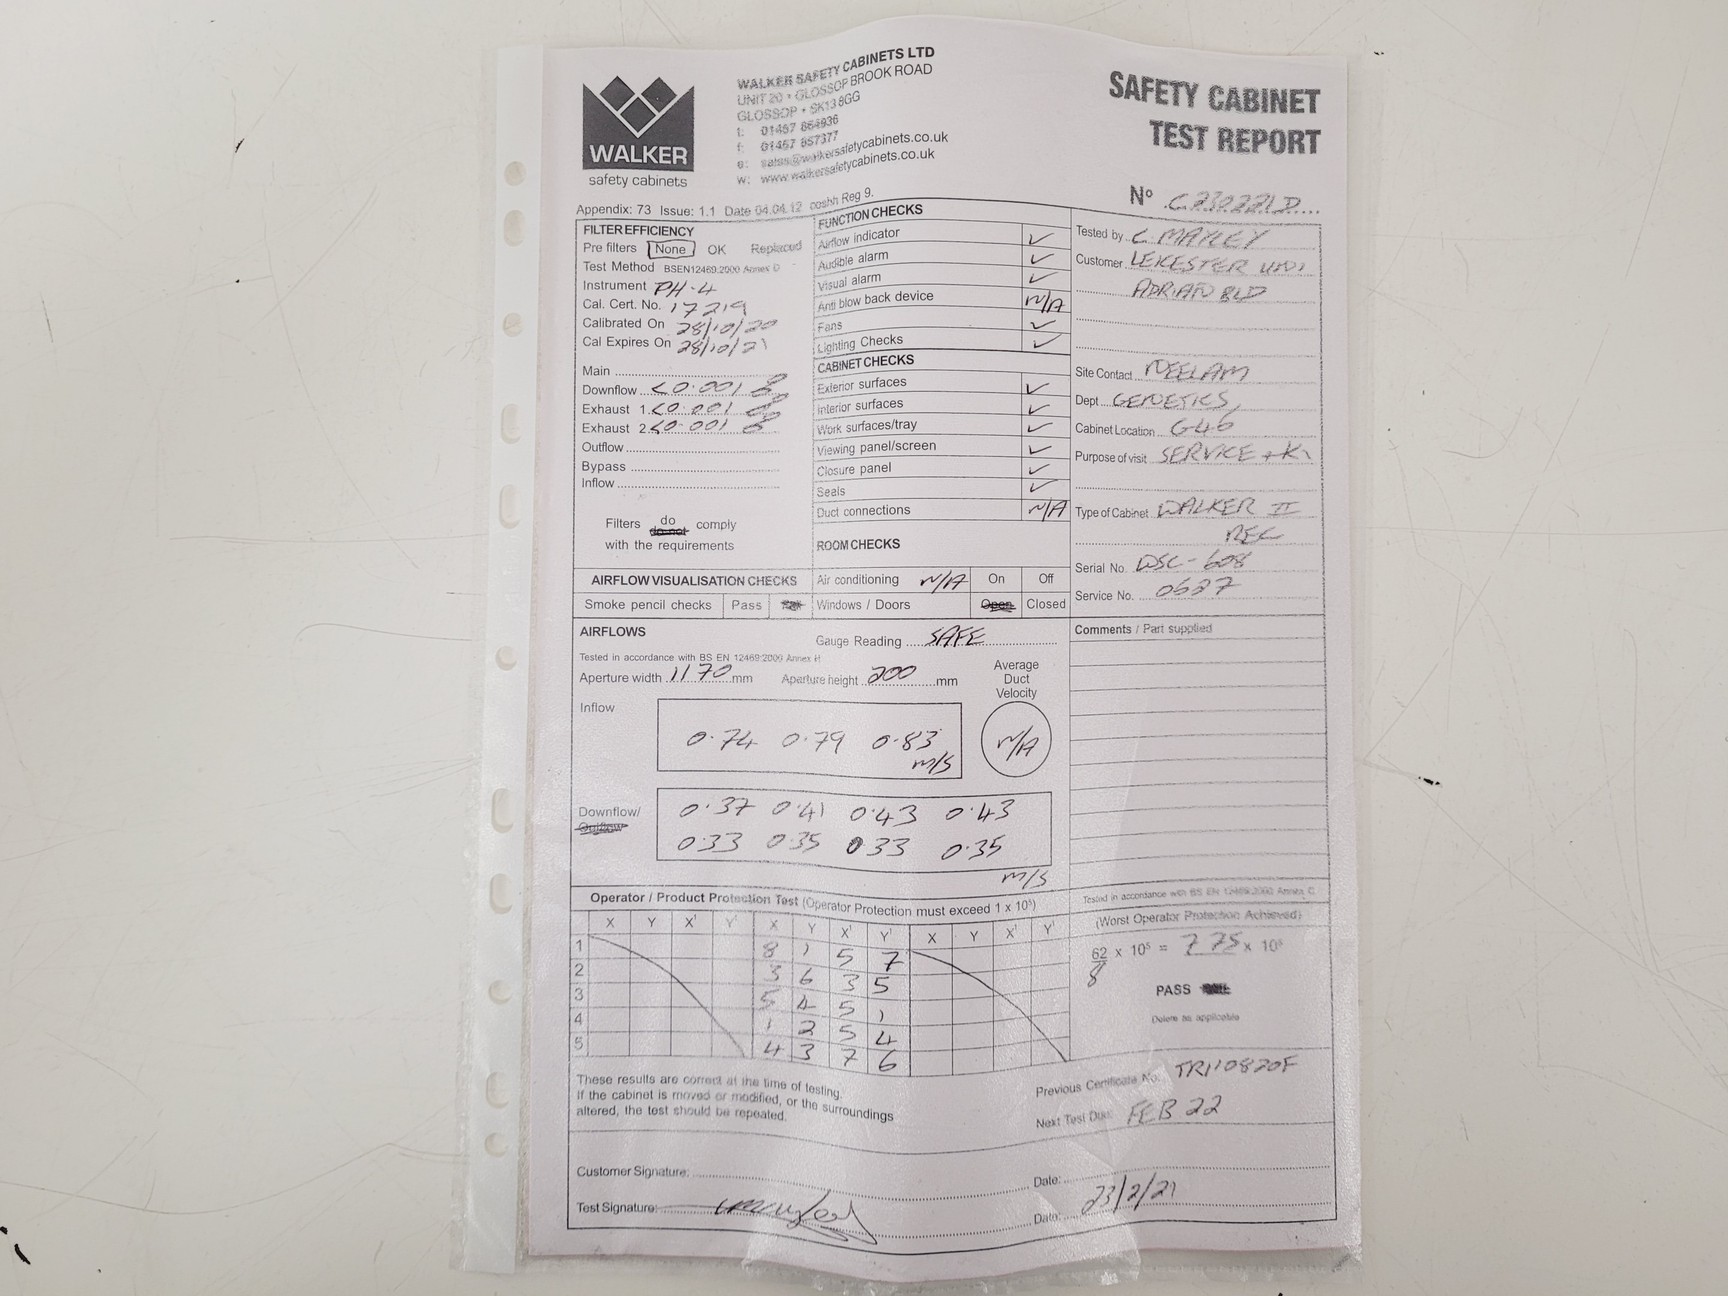 WALKER
safety cabinets
WALKER SAFETY CABINETS LTD
UNIT 20 • GLOSSOP BROOK ROAD
GLOSSOP • SK13 8GG
t: 01457 864936
f: 01457 857377
e: sales@walkersafetycabinets.co.uk
w: www.walkersafetycabinets.co.uk
SAFETY CABINET
TEST REPORT
Nº C230221D
Appendix: 73 Issue: 1.1 Date 04.04.12 coshh Reg 9.
FILTER EFFICIENCY
Pre filters None OK Replaced
Test Method BSEN12469:2000 Annex D
Instrument PH-4
Cal. Cert. No. 17219
Calibrated On 28/10/20
Cal Expires On 28/10/21
Main
Downflow <0.001 %
Exhaust 1. <0.001 %
Exhaust 2. <0.001 %
Outflow
Bypass
Inflow
Filters do do not comply
with the requirements
FUNCTION CHECKS
Airflow indicator ✓
Audible alarm ✓
Visual alarm ✓
Anti blow back device N/A
Fans ✓
Lighting Checks ✓
CABINET CHECKS
Exterior surfaces ✓
Interior surfaces ✓
Work surfaces/tray ✓
Viewing panel/screen ✓
Closure panel ✓
Seals ✓
Duct connections N/A
ROOM CHECKS
Air conditioning N/A On Off
Windows / Doors Open Closed
AIRFLOW VISUALISATION CHECKS
Smoke pencil checks Pass
Tested by C MAYLEY
Customer LEICESTER UNI
ADRIAN BLD
Site Contact NEELAM
Dept GENETICS,
Cabinet Location G46
Purpose of visit SERVICE + KI
Type of Cabinet WALKER II
REC
Serial No. WSC-608
Service No. 0627
AIRFLOWS
Gauge Reading SAFE
Tested in accordance with BS EN 12469:2000 Annex H
Aperture width 1170 mm Aperture height 200 mm
Average
Duct
Velocity
N/A
Inflow
0.74 0.79 0.83
m/s
Downflow/
Outflow
0.37 0.41 0.43 0.43
0.33 0.35 0.33 0.35
m/s
Comments / Part supplied
Operator / Product Protection Test (Operator Protection must exceed 1 x 10⁵)
X Y X¹ Y¹ X Y X¹ Y¹ X Y X¹ Y¹
1 8 1 5 7
2 3 6 3 5
3 5 4 5 1
4 1 2 5 4
5 4 3 7 6
Tested in accordance with BS EN 12469:2000 Annex C
(Worst Operator Protection Achieved)
62/8 x 10⁵ = 7.75 x 10⁵
PASS
Delete as applicable
These results are correct at the time of testing.
If the cabinet is moved or modified, or the surroundings
altered, the test should be repeated.
Previous Certificate No: TR110820F
Next Test Due: FEB 22
Customer Signature:
Date:
Test Signature:
Date: 23/2/21